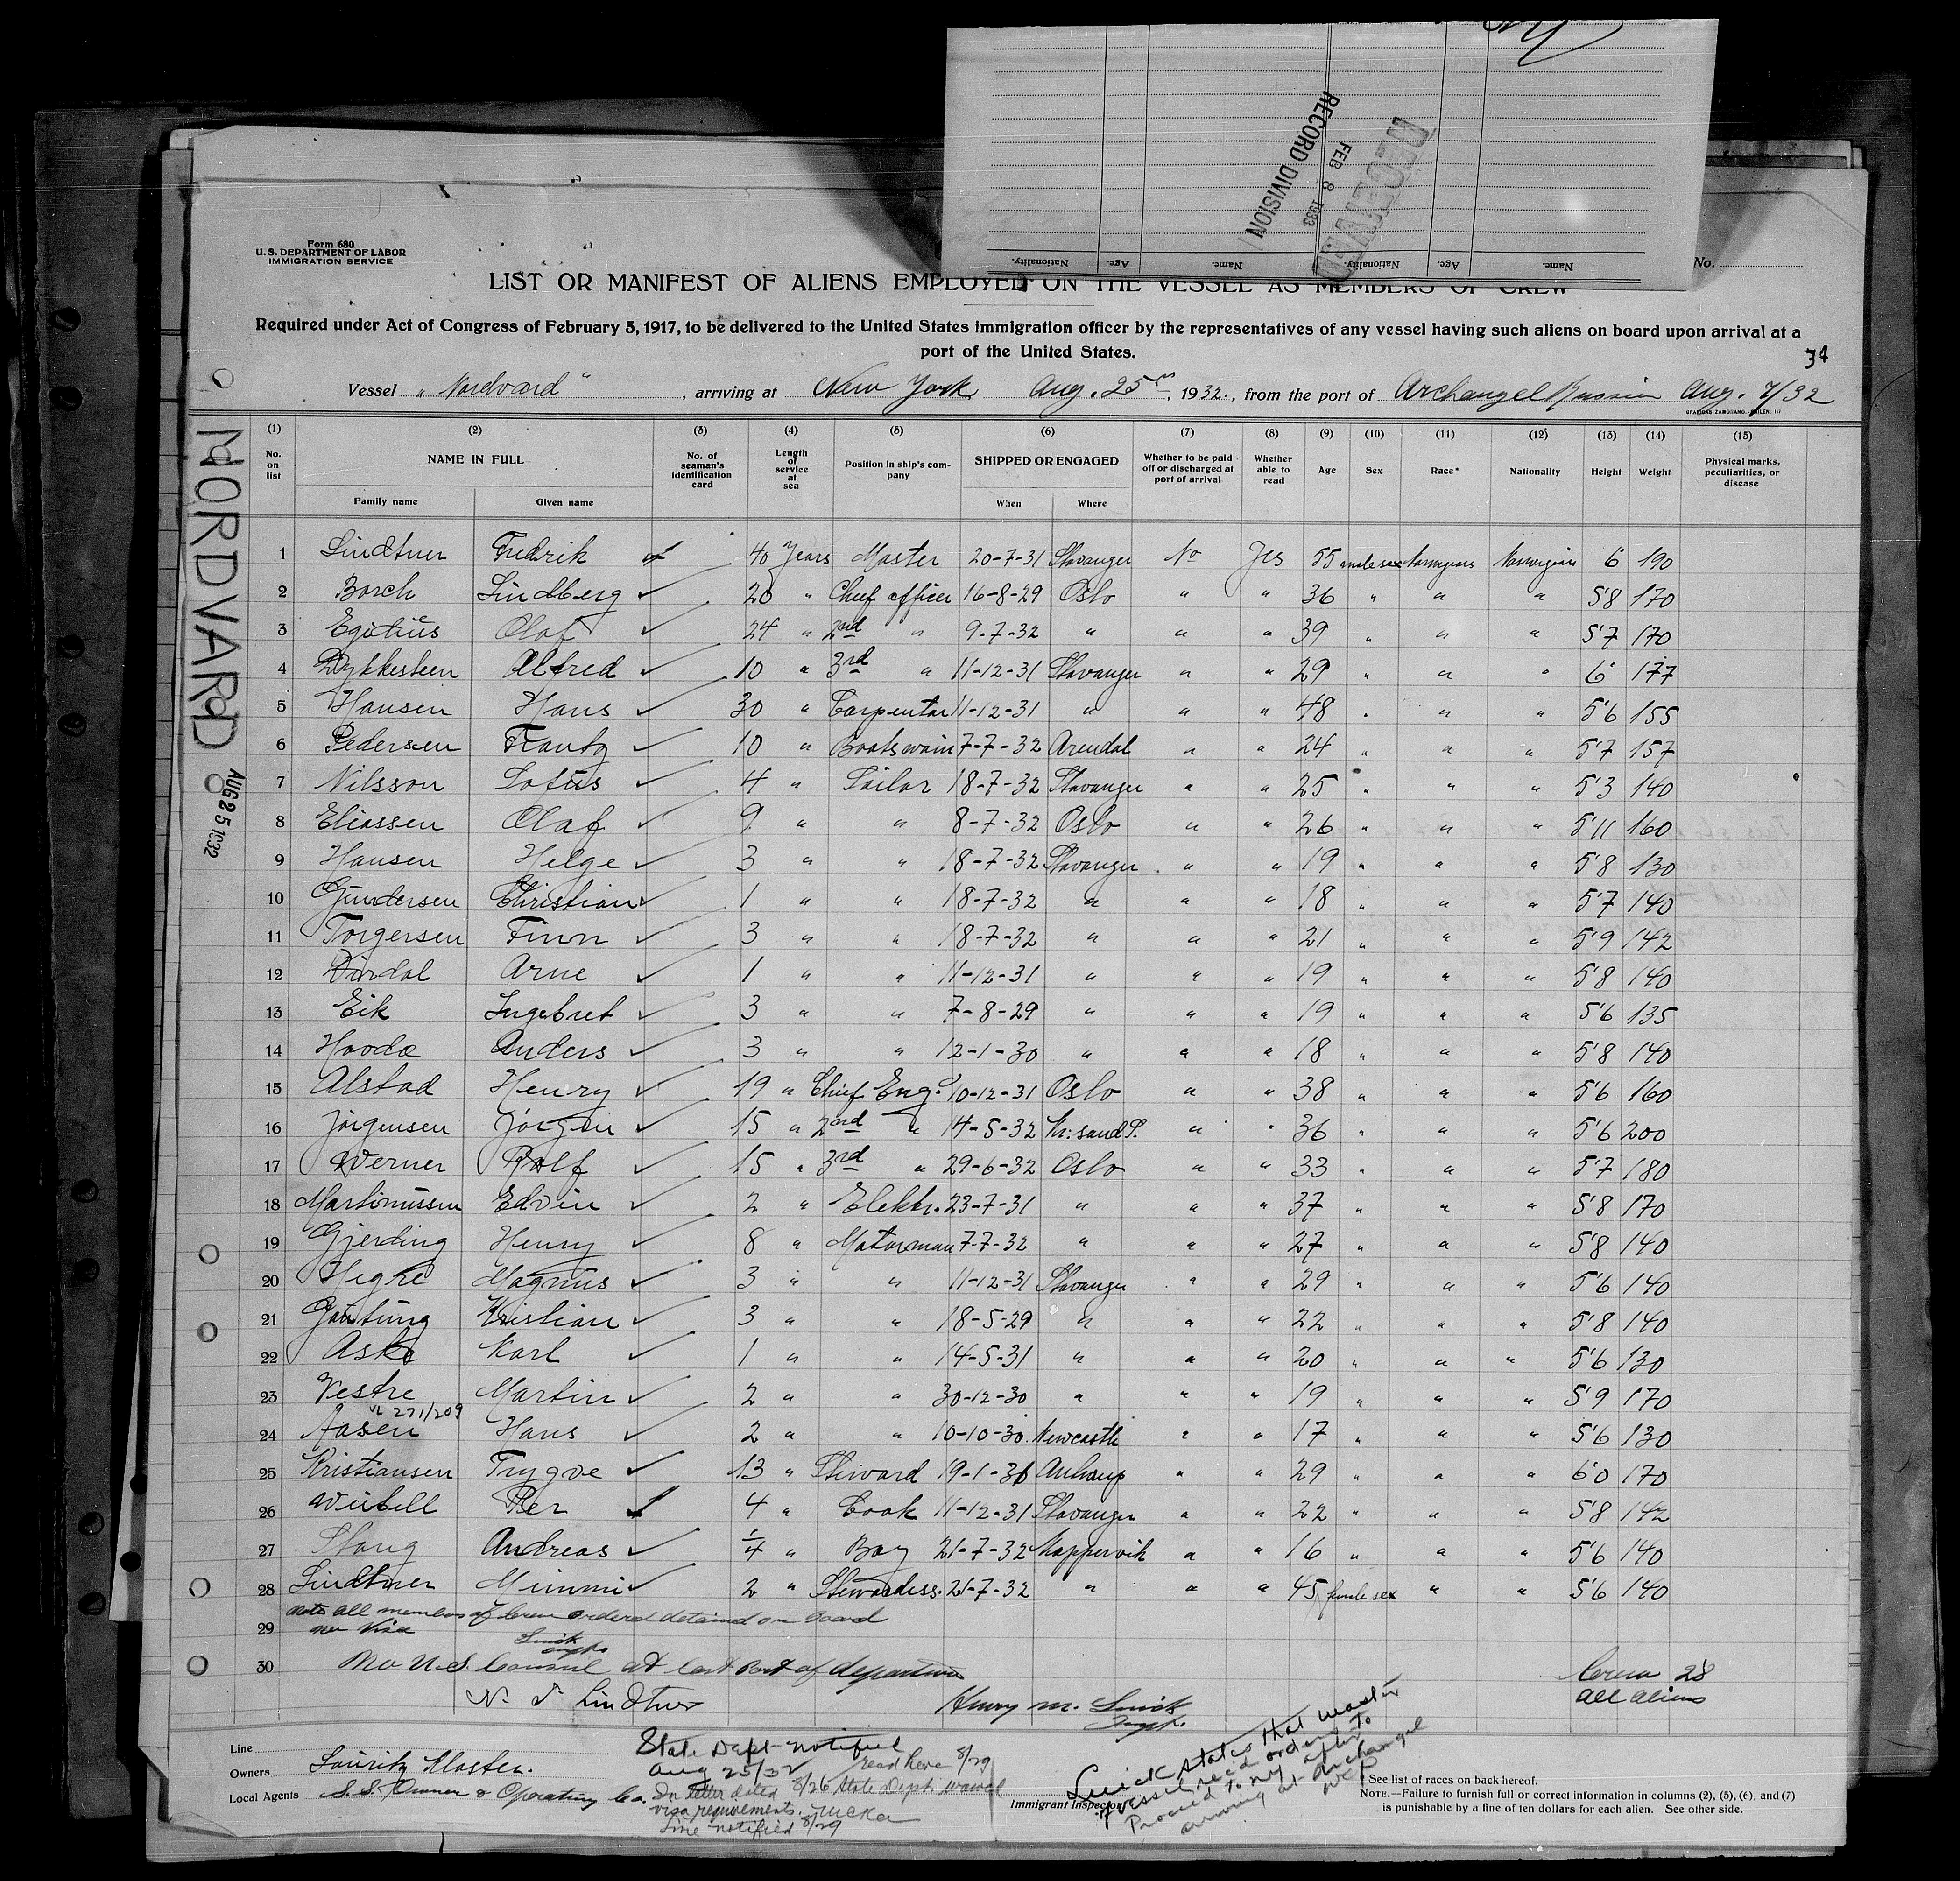 RECEIVED
FEB 8 1933
RECORD DIVISION
Nationality. Age. Name. Nationality. Age. Name.
Form 680
U. S. DEPARTMENT OF LABOR
IMMIGRATION SERVICE
No.
LIST OR MANIFEST OF ALIENS EMPLOYED ON THE VESSEL AS MEMBERS OF CREW
Required under Act of Congress of February 5, 1917, to be delivered to the United States immigration officer by the representatives of any vessel having such aliens on board upon arrival at a
port of the United States.
34
Vessel "Nordvard", arriving at New York Aug. 25th, 1932., from the port of Archangel Russia Aug. 7/32
(1) (2) (3) (4) (5) (6) (7) (8) (9) (10) (11) (12) (13) (14) (15)
No. on list NAME IN FULL No. of seaman's identification card Length of service at sea Position in ship's company SHIPPED OR ENGAGED Whether to be paid off or discharged at port of arrival Whether able to read Age Sex Race* Nationality Height Weight Physical marks, peculiarities, or disease
Family name Given name When Where
NORDVARD
AUG 25 1932
1 Lindtner Fredrik 40 Years Master 20-7-31 Stavanger No Yes 55 male sex Norwegians Norwegian 6 190
2 Borch Lindberg ✓ 20 " Chief officer 16-8-29 Oslo " " 36 " " " 5'8 170
3 Egitiüs Olaf ✓ 24 " 2nd " 9-7-32 " " " 39 " " " 5'7 170
4 Dykkesteen Alfred ✓ 10 " 3rd " 11-12-31 Stavanger " " 29 " " " 6' 177
5 Hansen Hans ✓ 30 " Carpentar 11-12-31 " " " 48 " " " 5'6 155
6 Pedersen Frantz ✓ 10 " Boatswain 7-7-32 Arendal " " 24 " " " 5'7 157
7 Nilsson Lotüs ✓ 4 " Sailor 18-7-32 Stavanger " " 25 " " " 5'3 140
8 Eliassen Olaf ✓ 9 " " 8-7-32 Oslo " " 26 " " " 5'11 160
9 Hansen Helge ✓ 3 " " 18-7-32 Stavanger " " 19 " " " 5'8 130
10 Gündersen Christian ✓ 1 " " 18-7-32 " " " 18 " " " 5'7 140
11 Torgersen Finn ✓ 3 " " 18-7-32 " " " 21 " " " 5'9 142
12 Arne ✓ 1 " " 11-12-31 " " " 19 " " " 5'8 140
13 Eik Ingebret ✓ 3 " " 7-8-29 " " " 19 " " " 5'6 135
14 Hooda Anders ✓ 3 " " 12-1-30 " " " 18 " " " 5'8 140
15 Alstad Henry ✓ 19 " Chief Eng. 10-12-31 Oslo " " 38 " " " 5'6 160
16 Jörgensen Jörgen ✓ 15 " 2nd " 14-5-32 Kr:sand S. " " 36 " " " 5'6 200
17 Werner Rolf ✓ 15 " 3rd " 29-6-32 Oslo " " 33 " " " 5'7 180
18 Martinüssen Edvin ✓ 2 " Elektr. 23-7-31 " " " 37 " " " 5'8 170
19 Gjerding Henry ✓ 8 " Motorman 7-7-32 " " " 27 " " " 5'8 140
20 Hegre Magnüs ✓ 3 " " 11-12-31 Stavanger " " 29 " " " 5'6 140
21 Gautüng Kristian ✓ 3 " " 18-5-29 " " " 22 " " " 5'8 140
22 Aske Karl ✓ 1 " " 14-5-31 " " " 20 " " " 5'6 130
23 Vestre Martin ✓ 2 " " 30-12-30 " " " 19 " " " 5'9 170
271/209
24 Aasen Hans ✓ 2 " " 10-10-30 Newcastle " " 17 " " " 5'6 130
25 Kristiansen Trygve ✓ 13 " Steward 19-1-31 Antwerp " " 29 " " " 6'0 170
26 Per 4 " Cook 11-12-31 Stavanger " " 22 " " " 5'8 142
27 Stang Andreas ✓ 1/4 " Boy 21-7-32 Kappervik " " 16 " " " 5'6 140
28 Lindtner Mimmi ✓ 2 " Stewardess. 21-7-32 " " " 45 female sex " " 5'6 140
29 Note all members of Crew ordered detained on board
no Visa
30 No U.S. Consul at last Port of departure
Crew 28
all aliens
Lindtner
Henry M.
Line
Owners Lauritz Kloster.
Local Agents S.S. Owner & Operating Co.
State Dept notified
Aug 25/32
read here 8/29
In letter dated 8/26 State Dept. waived
visa requirements.
Line notified 8/29
states that master
of vessel rec'd orders to
Proceed to NY after
arriving at Archangel
Immigrant Inspector
* See list of races on back hereof.
NOTE.—Failure to furnish full or correct information in columns (2), (5), (6), and (7)
is punishable by a fine of ten dollars for each alien. See other side.